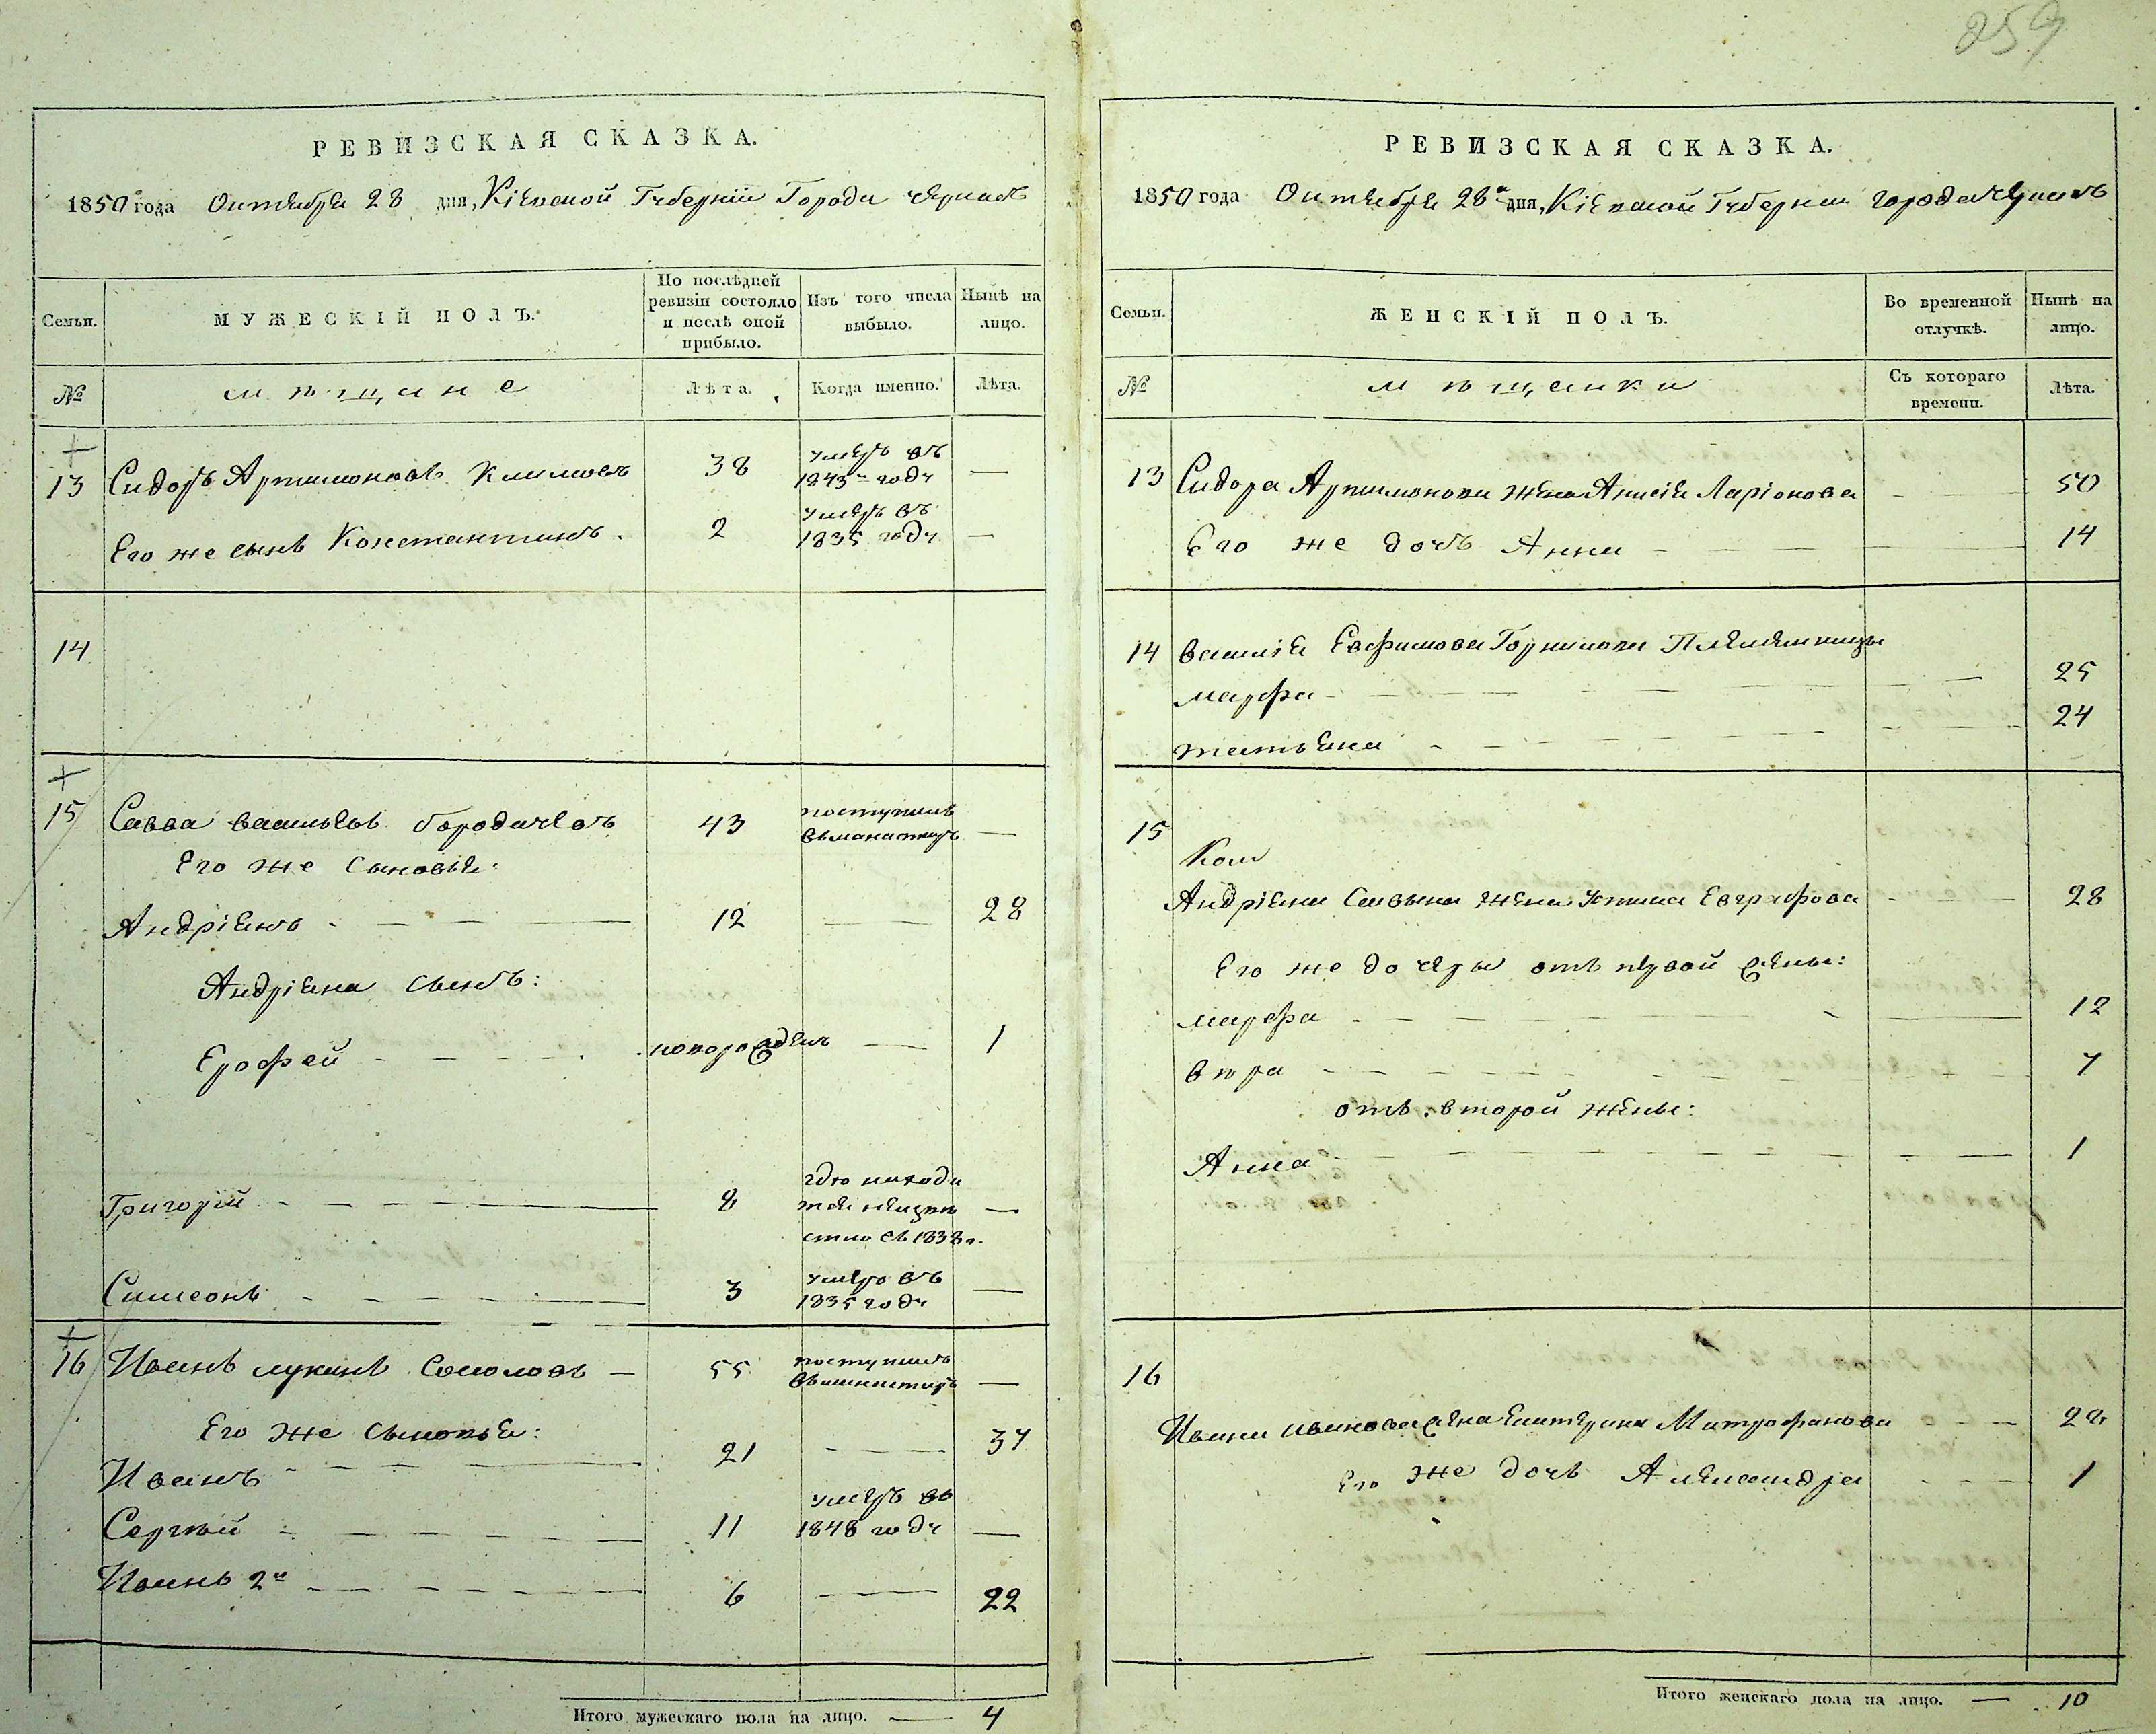 259
РЕВИЗСКАЯ СКАЗКА.
1850 года Октября 28 дня, Кіевской Губерніи Города Черкасъ
Семьи.
МУЖЕСКІЙ ПОЛЪ.
По послѣдней ревизіи состояло и послѣ оной прибыло.
Изъ того числа выбыло.
Нынѣ на лицо.
№
мѣщане
Лѣта.
Когда именно.
Лѣта.
13 Сидоръ Артимоновъ Климовъ 38 умеръ въ 1843 году —
Его же сынъ Константинъ. 2 умеръ въ 1835 году —
14
15 Савва Васильевъ Бородачевъ 43 поступилъ въ манастиръ —
Его же сыновья:
Андріянъ 12 — 28
Андріяна сынъ:
Ерофей новорожденъ — 1
Григорій 8 гдѣ находится неизвѣстно съ 1838 г. —
Симеонъ 3 умеръ въ 1835 году —
16 Иванъ Лукинъ Соколовъ — 55 поступилъ въ манастиръ —
Его же сыновья:
Иванъ 21 — 37
Сергѣй 11 умеръ въ 1848 году —
Иванъ 2й 6 — 22
Итого мужескаго пола на лицо. — 4
РЕВИЗСКАЯ СКАЗКА.
1850 года Октября 28 дня, Кіевской Губерніи города Черкасъ
Семьи.
ЖЕНСКІЙ ПОЛЪ.
Во временной отлучкѣ.
Нынѣ на лицо.
№
мѣщанки
Съ котораго времени.
Лѣта.
13 Сидора Артимонова жена Анисія Ларіонова — 50
Его же дочь Анна — 14
14 Василія Евфимова Племянницы
Марфа — 25
Татьяна — 24
15
Андріяна Савина жена Устина Евграфова — 28
Его же дочеры отъ первой жены:
Марфа — 12
Вѣра — 7
отъ второй жены:
Анна — 1
16
Ивана Иванова жена Екатерина Митрофанова — 28
Его же дочь Александра — 1
Итого женскаго пола на лицо. — 10